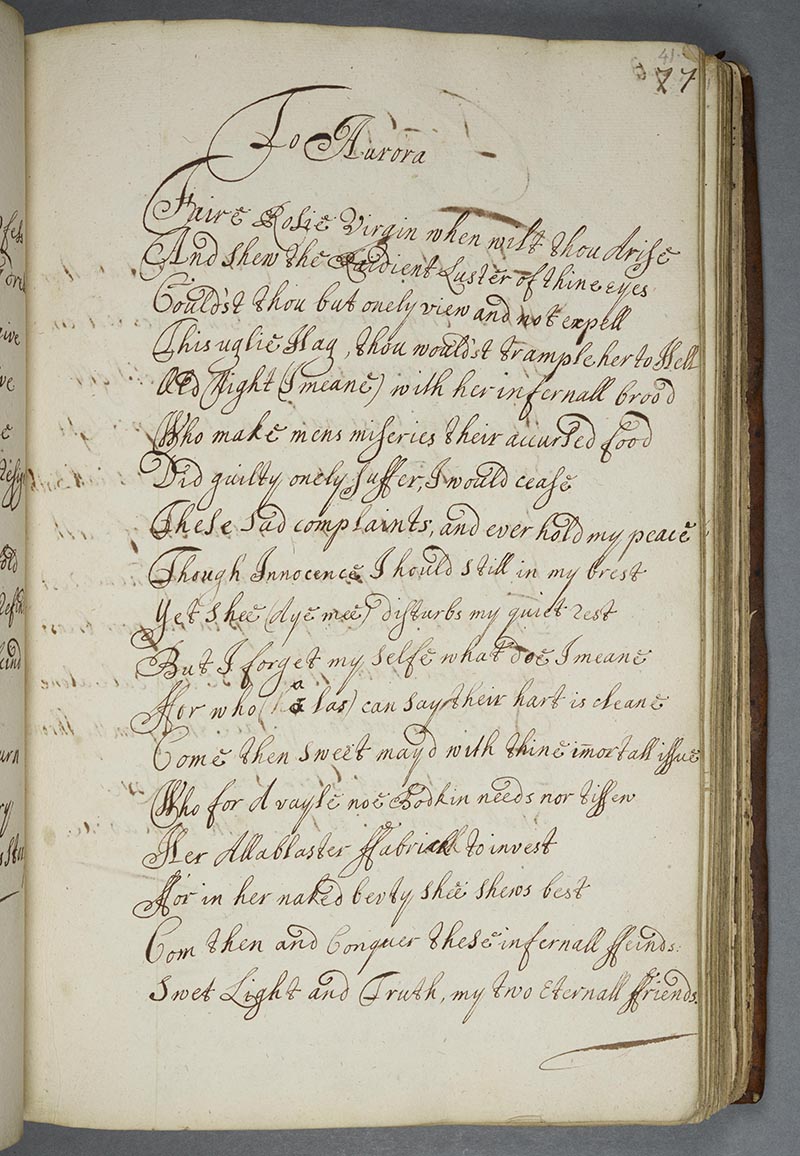 41
77
To Aurora
Faire Rosie Virgin when wilt thou Arise
And shew the Radient Luster of thine eyes
Could'st thou but onely view and not expell
This uglie Hag, thou would'st trample her to Hell
Old Night (I meane) with her infernall brood
Who make mens miseries their accursed food
Did guilty onely suffer, I would cease
These sad complaints, and ever hold my peace
Though Innocence I hould still in my brest
Yet shee (Aye mee) disturbs my quiet rest
But I forget my selfe what doe I meane
ffor who (alas) can say their hart is cleane
Come then sweet mayd with thine imortall issue
Who for A vayle noe Bodkin needs nor tissew
Her Allablaster ffabrick to invest
ffor in her naked bevty shee shews best
Com then and Conquer these infernall ffeinds:
Swet Light and Truth, my two Eternall ffriends.